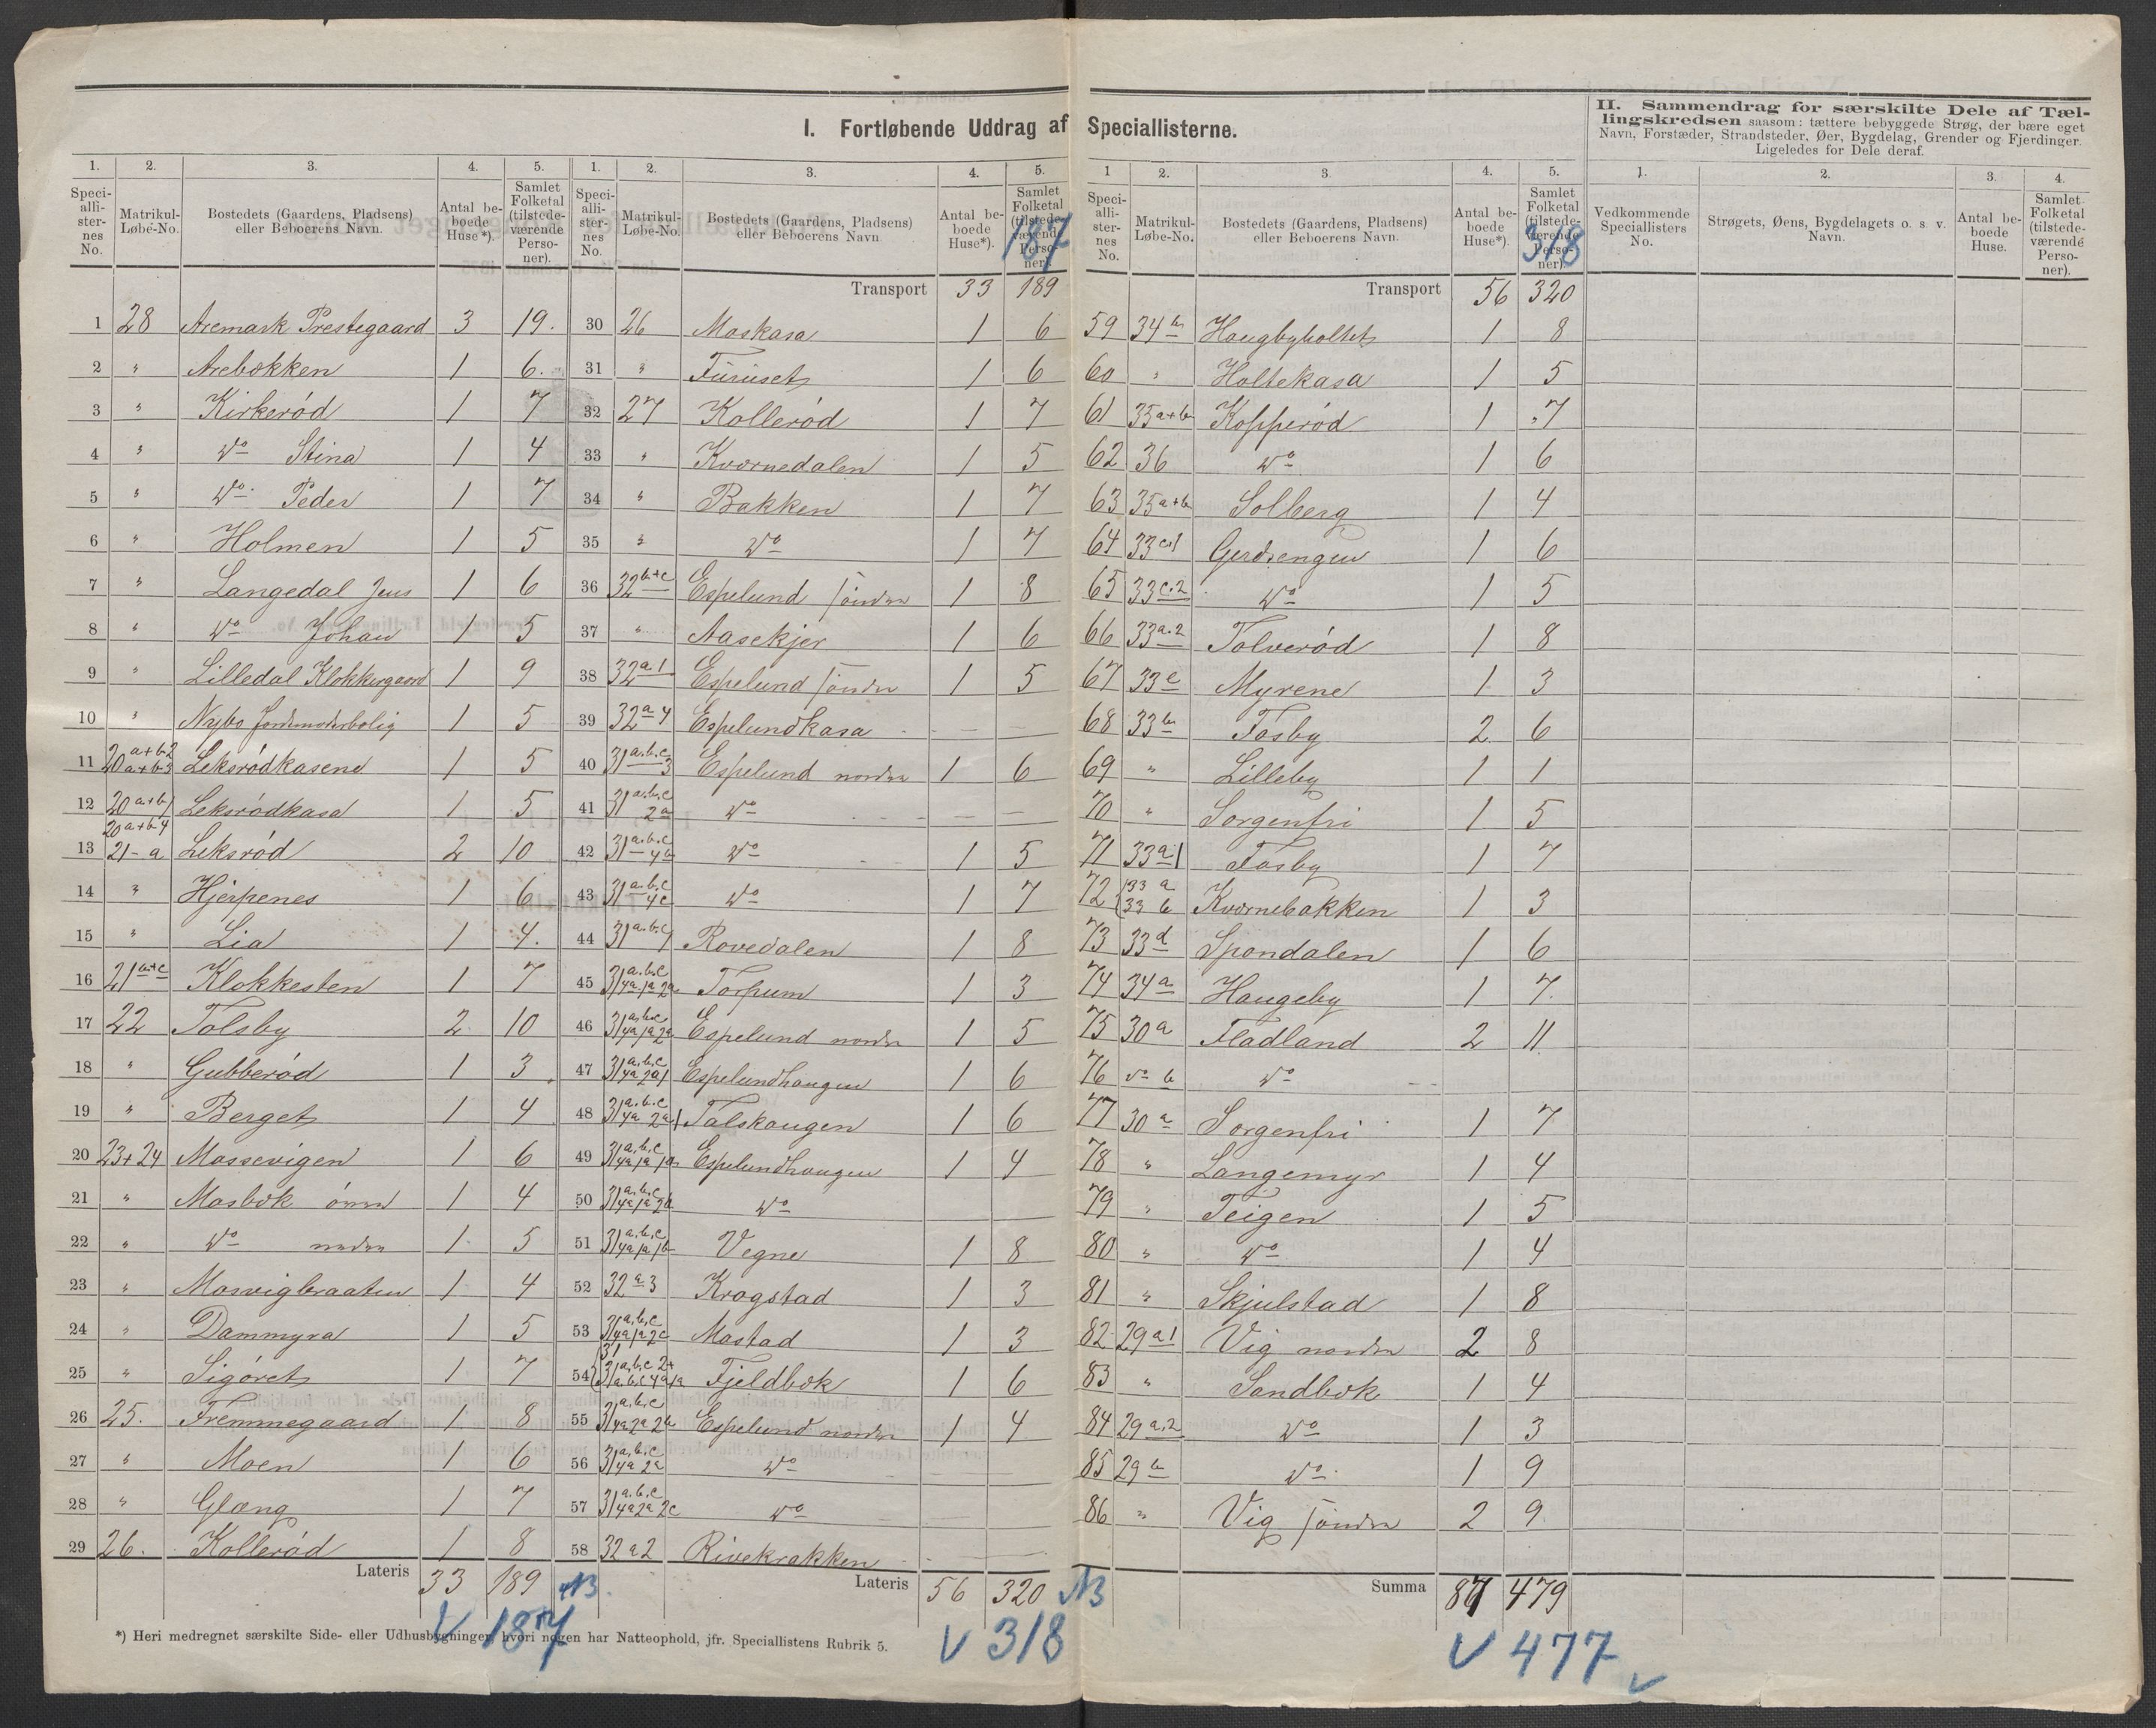 I. Fortløbende Uddrag af Speciallisterne.
II. Sammendrag for særskilte Dele af Tæl-
lingskredsen saasom: tættere bebyggede Strøg, der bære eget
Navn, Forstæder, Strandsteder, Øer, Bygdelag, Grender og Fjerdinger.
Ligeledes for Dele deraf.
1. 2. 3. 4. 5.
Speci-alli-ster-nes No. Matrikul-Løbe-No. Bostedets (Gaardens, Pladsens) eller Beboerens Navn. Antal be-boede Huse*). Samlet Folketal (tilstede-værende Perso-ner).
1 28 Aremark Prestegaard 3 19.
2 " Arebækken 1 6.
3 " Kirkerød 1 7
4 " Do Stina 1 4
5 " Do Peder 1 7
6 " Holmen 1 5
7 " Langedal Jens 1 6
8 " Do Johan 1 5
9 " Lilledal Klokkergaard 1 9
10 " Nybo Jordemoderbolig 1 5
11 20 a+b 2 20 a+b 3 Leksrødkasene 1 5
12 20 a+b 1 Leksrødkasa 1 5
13 20 a+b 4 21 - a Leksrød 2 10
14 " Hjerpenes 1 6
15 " Lia 1 4.
16 21 b+c Klokkesten 1 7
17 22 Tolsby 2 10
18 " Gubberød 1 3
19 " Berget 1 4
20 23+24 Massevigen 1 6
21 " Mosbæk øvre 1 4
22 " Do nedre 1 5
23 " Mosvigbraaten 1 4
24 " Dammyra 1 5
25 " Sigøret 1 7
26 25. Fremmegaard 1 8
27 " Moen 1 6
28 " Glæng 1 7
29 26. Kollerød 1 8
Lateris 33 189 NB.
V 187
*) Heri medregnet særskilte Side- eller Udhusbygninger, hvori nogen har Natteophold, jfr. Speciallistens Rubrik 5.
1. 2. 3. 4. 5.
Speci-alli-ster-nes No. Matrikul-Løbe-No. Bostedets (Gaardens, Pladsens) eller Beboerens Navn. Antal be-boede Huse*). Samlet Folketal (tilstede-værende Perso-ner).
187
Transport 33 189
30 26 Moskasa 1 6
31 " Furuset 1 6
32 27 Kollerød 1 7
33 " Kværnedalen 1 5
34 " Bakken 1 7
35 " Do 1 7
36 32 b+c Espelund søndre 1 8
37 " Aasekjer 1 6
38 32 a 1 Espelund søndre 1 5
39 32 a 4 Espelundkasa — —
40 31 a.b.c 3 Espelund nordre 1 6
41 31 a.b.c 2a Do — —
42 31 a.b.c 4b Do 1 5
43 31 a.b.c 4c Do 1 7
44 31 a.b.c 1 Rovedalen 1 8
45 31 a.b.c 4a 1a 2a Torpum 1 3
46 31 a.b.c 4a 1a 2a Espelund nordre 1 5
47 31 a.b.c 4a 2a 1 Espelundhaugen 1 6
48 31 a.b.c 4a 2a 1 Talskaugen 1 6
49 31 a.b.c 4a 1a 1a Espelundhaugen 1 4
50 31 a.b.c 4a 1a 2b Do
51 31 a.b.c 4a 1a 1b Vegne 1 8
52 32 a 3 Krogstad 1 3
53 31 a.b.c 4a 1a 2c Mostad 1 3
54 31 31 a.b.c 2+ a.b.c 4a 1a Fjeldbæk 1 6
55 31 a.b.c 4a 2a 2b Espelund nordre 1 4
56 31 a.b.c 4a 2a Do — —
57 31 a.b.c 4a 2a 2c Do
58 32 a 2 Rivekrakken — —
Lateris 56 320 NB
V 318
1 2. 3. 4. 5.
Speci-alli-ster-nes No. Matrikul-Løbe-No. Bostedets (Gaardens, Pladsens) eller Beboerens Navn. Antal be-boede Huse*). Samlet Folketal (tilstede-værende Perso-ner).
318
Transport 56 320
59 34 b Haugbyholtet 1 8
60 " Holtekasa 1 5
61 35 a+b Kopperød 1 7
62 36 Do 1 6
63 35 a+b Solberg 1 4
64 33 c.1 Gerdsengen 1 6
65 33 c.2 Do 1 5
66 33 a.2 Tolverød 1 8
67 33 e Myrene 1 3
68 33 b Fosby 2 6
69 " Lilleby 1 1
70 " Sorgenfri 1 5
71 33 a 1 Fosby 1 7
72 33 a 33 b Kværnebakken 1 3
73 33 d Spondalen 1 6
74 34 a Haugeby 1 7.
75 30 a Fladland 2 11
76 Do b Do — —
77 30 a Sorgenfri 1 7
78 " Langemyr 1 4
79 " Teigen 1 5
80 " Do 1 4
81 " Skjulstad 1 8
82 29 a 1 Vig nordre 2 8
83 " Sandbæk 1 4
84 29 a.2 Do 1 3
85 29 b Do 1 9
86 " Vig søndre 2 9
Summa 87 479
V 477 V
1. 2. 3. 4.
Vedkommende Speciallisters No. Strøgets, Øens, Bygdelagets o. s. v. Navn. Antal be-boede Huse. Samlet Folketal (tilstede-værende Perso-ner).